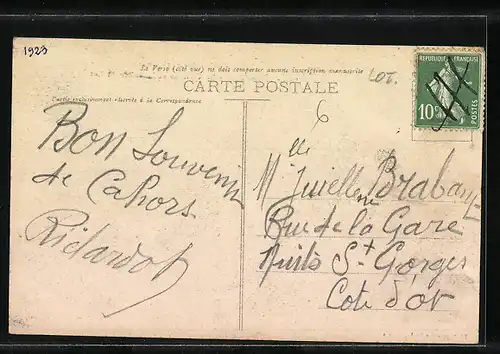 1923
Le Verso (côté vue) ne doit comporter aucune inscription manuscrite
LOT.
CARTE POSTALE
Partie exclusivement réservée à la Correspondance
RÉPUBLIQUE FRANÇAISE
10
POSTES
6
Bon Souvenir
de Cahors
Mlle
Rue de la Gare
Nuits St Gorges
Cote d'or